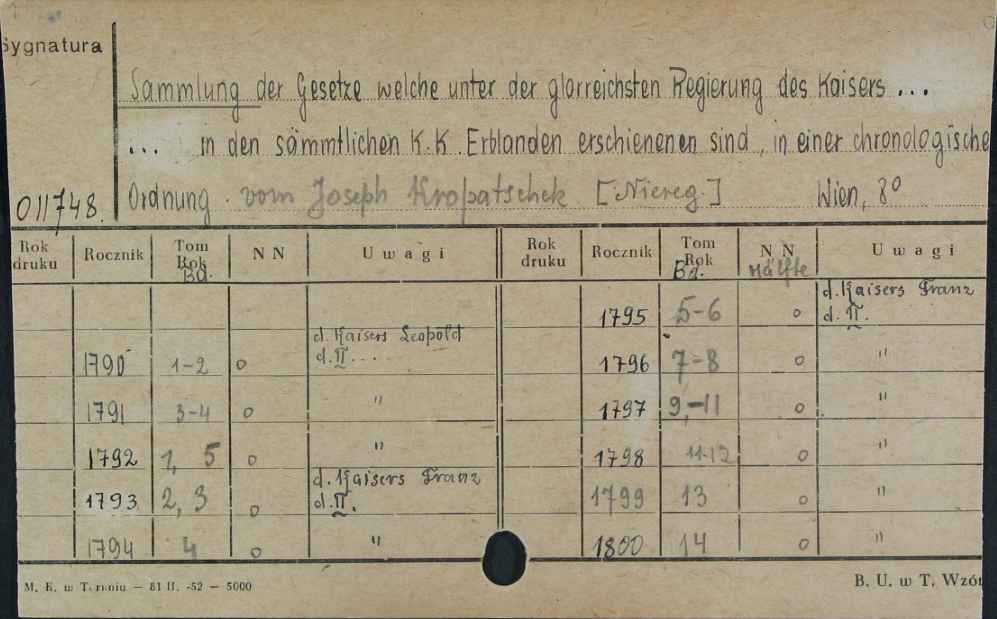 Sygnatura
Sammlung der Gesetze welche unter der glorreichsten Regierung des Kaisers ...
... in den sämmtlichen K.K. Erblanden erschienenen sind, in einer chronologische
011748. Ordnung. vom Joseph Kropatschek [Niereg.] Wien, 8°
Rok druku Rocznik Tom Rok Bd. NN Uwagi Rok druku Rocznik Tom Rok Bd. NN Hälfte Uwagi
1795 5-6 o d. Kaisers Franz d. II.
1790 1-2 o d. Kaisers Leopold d. II. ... 1796 7-8 o "
1791 3-4 o " 1797 9,-11 o "
1792 1, 5 o " 1798 11-12 o "
1793 2, 3 o d. Kaisers Franz d. II. 1799 13 o "
1794 4 o " 1800 14 o "
M. K. w Toruniu — 81 II. -52 — 5000 B. U. w T. Wzór